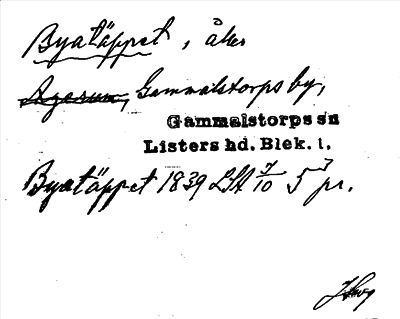 Byatäppet, åker
Agerum, Gammalstorps by,
Gammalstorps sn
Listers hd. Blek. l.
Byatäppet 1839 LSA 7/10 5 7 pr.